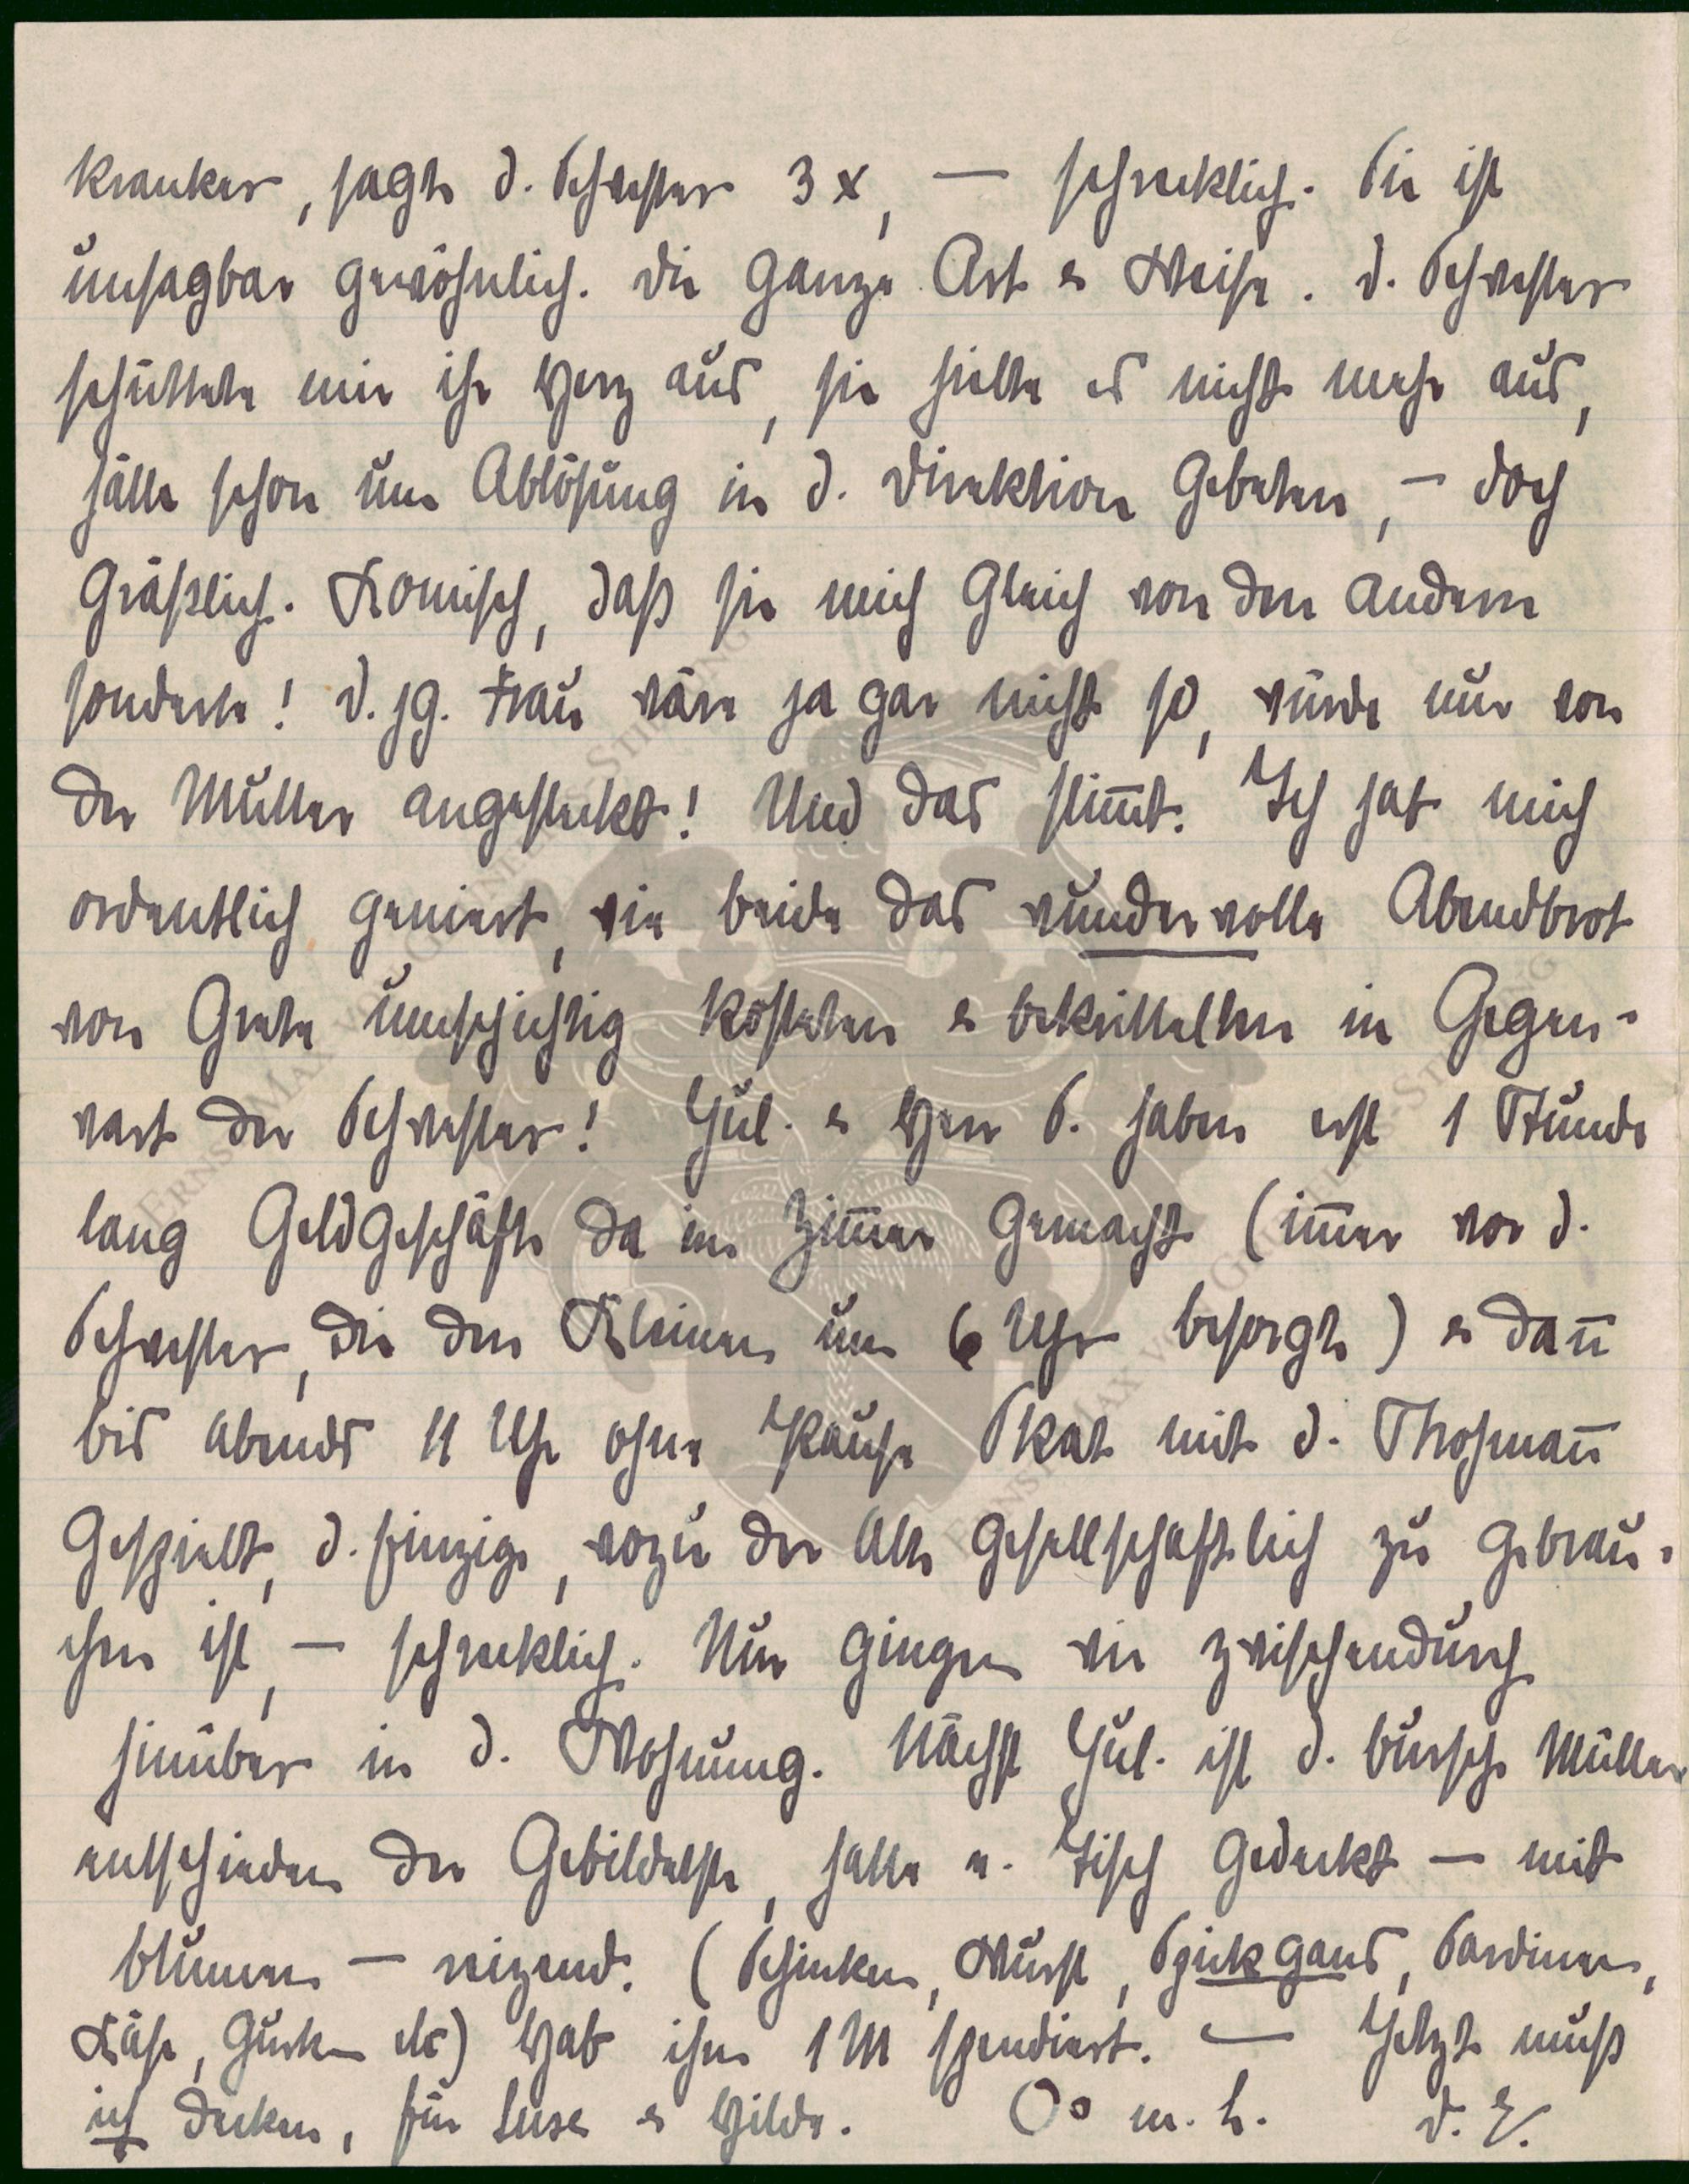 kranker, sagte d. Schwester 3 x, — schrecklich. Sie ist
unsagbar gewöhnlich. Die ganze Art & Weise. D. Schwester
schüttete mir ihr Herz aus, sie hielte es nicht mehr aus,
hätte schon um Ablösung in d. Direktion gebeten, – doch
gräßlich. Komisch, daß sie mich gleich von den andern
sonderte! D. jg. Frau wäre ja gar nicht so, würde nur von
der Müller angesteckt! Und das stim̅t. Ich hab mich
ordentlich geniert, wie beide das wundervolle Abendbrot
von Grete umschichtig kosteten & bekrittelten in Gegen-
wart der Schwester! Jul. & Herr S. haben erst 1 Stunde
lang Geldgeschäfte da im Zim̅er gemacht (im̅er vor d.
Schwester, die den Kleinen um 6 Uhr besorgte) & dan̅
bis abends 11 Uhr ohne Pause Skat mit d. Thoman̅
gespielt, d. Einzige, wozu der Alte gesellschaftlich zu gebrau-
chen ist, — schrecklich. Nun gingen wir zwischendurch
hinüber in d. Wohnung. Nächst Jul. ist d. Bursche Müller
entschieden der Gebildetste, hatte n. Tisch gedeckt — mit
Blumen — reizend. (Schinken, Wurst, Spickgans, Sardinen,
Käse, Gurken etc) Hab ihm 1 M spendiert. — Jetzt muß
ich decken, für Luise & Hilde. m. L. D. E.